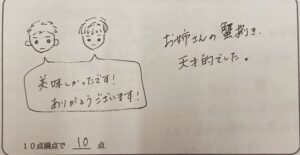 美味しかったです!
ありがとうございます!
お姉さんの蟹剥き、
天才的でした。
10点満点で 10 点